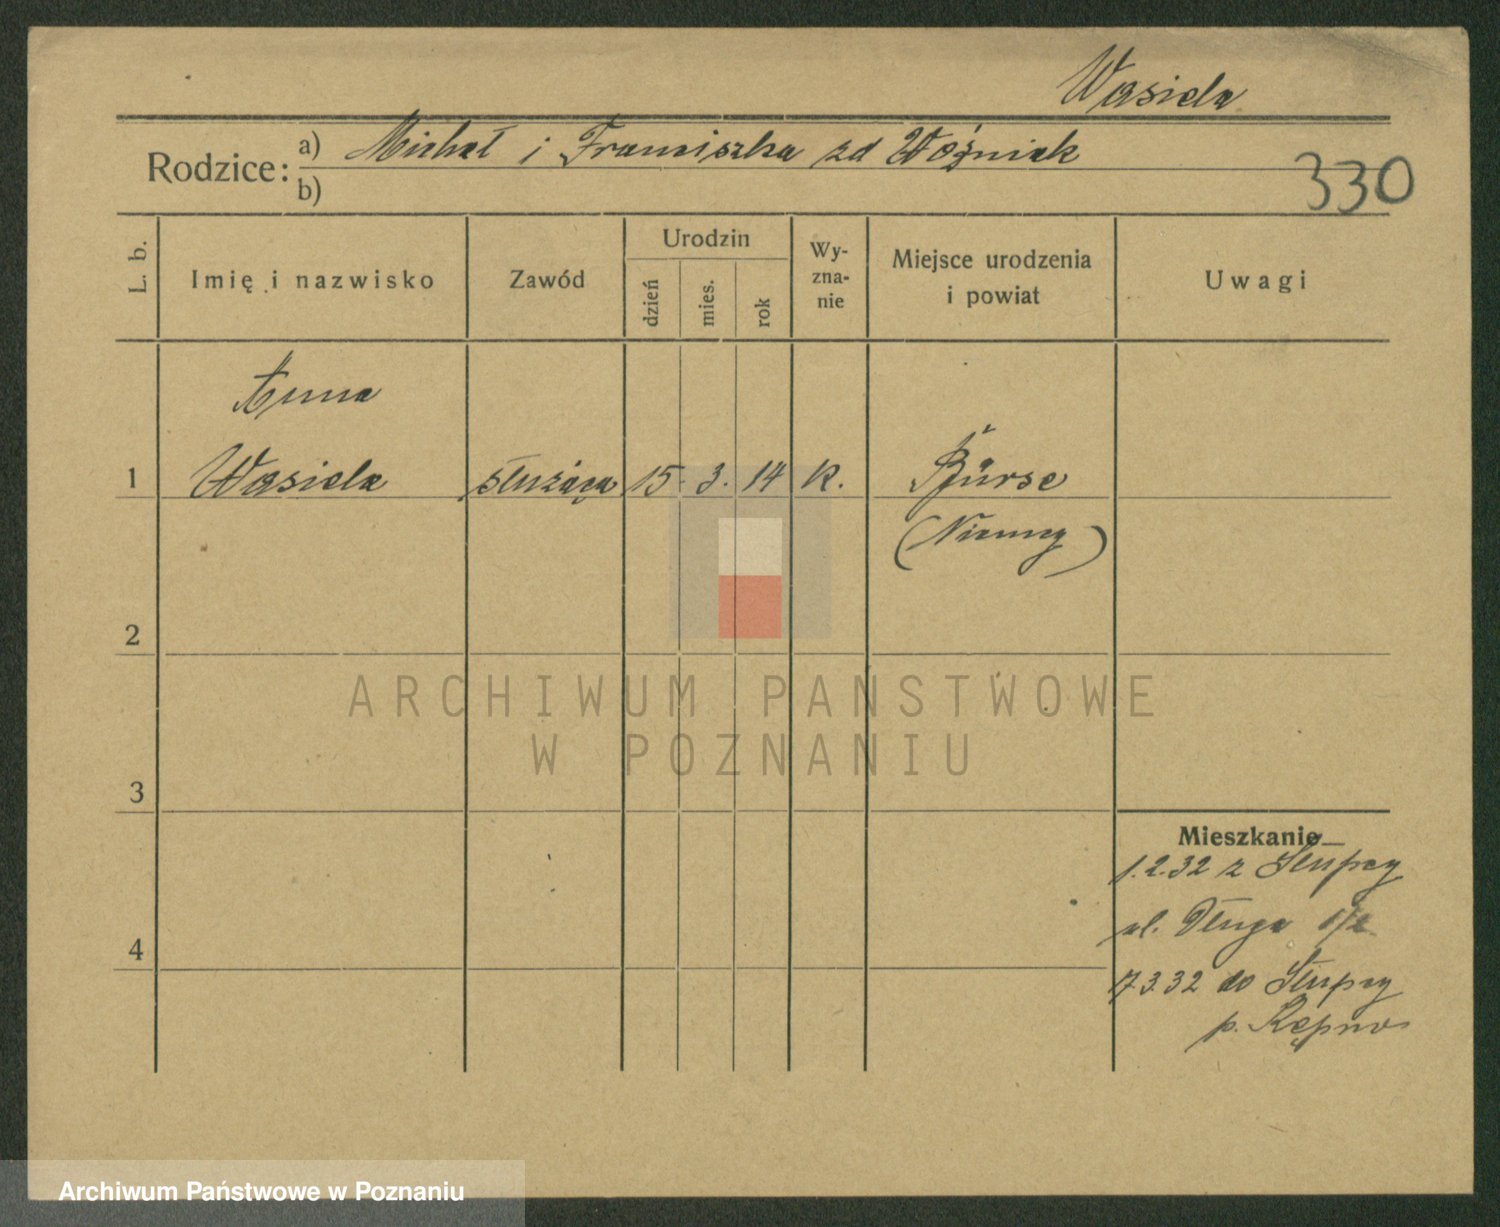 Wasiela
Rodzice: a) Michał i Franciszka zd Woźniak
b)
330
L. b.
Imię i nazwisko
Zawód
Urodzin
dzień
mies.
rok
Wy-
zna-
nie
Miejsce urodzenia
i powiat
Uwagi
Anna
1 Wasiela służąca 15. 3. 14 K. Bürse
(Niemcy)
2
ARCHIWUM PAŃSTWOWE
W POZNANIU
3
Mieszkanie
1.2.32 z Słupcy
ul. Długa
4
7.3.32 do Słupcy
p. Kępno
Archiwum Państwowe w Poznaniu